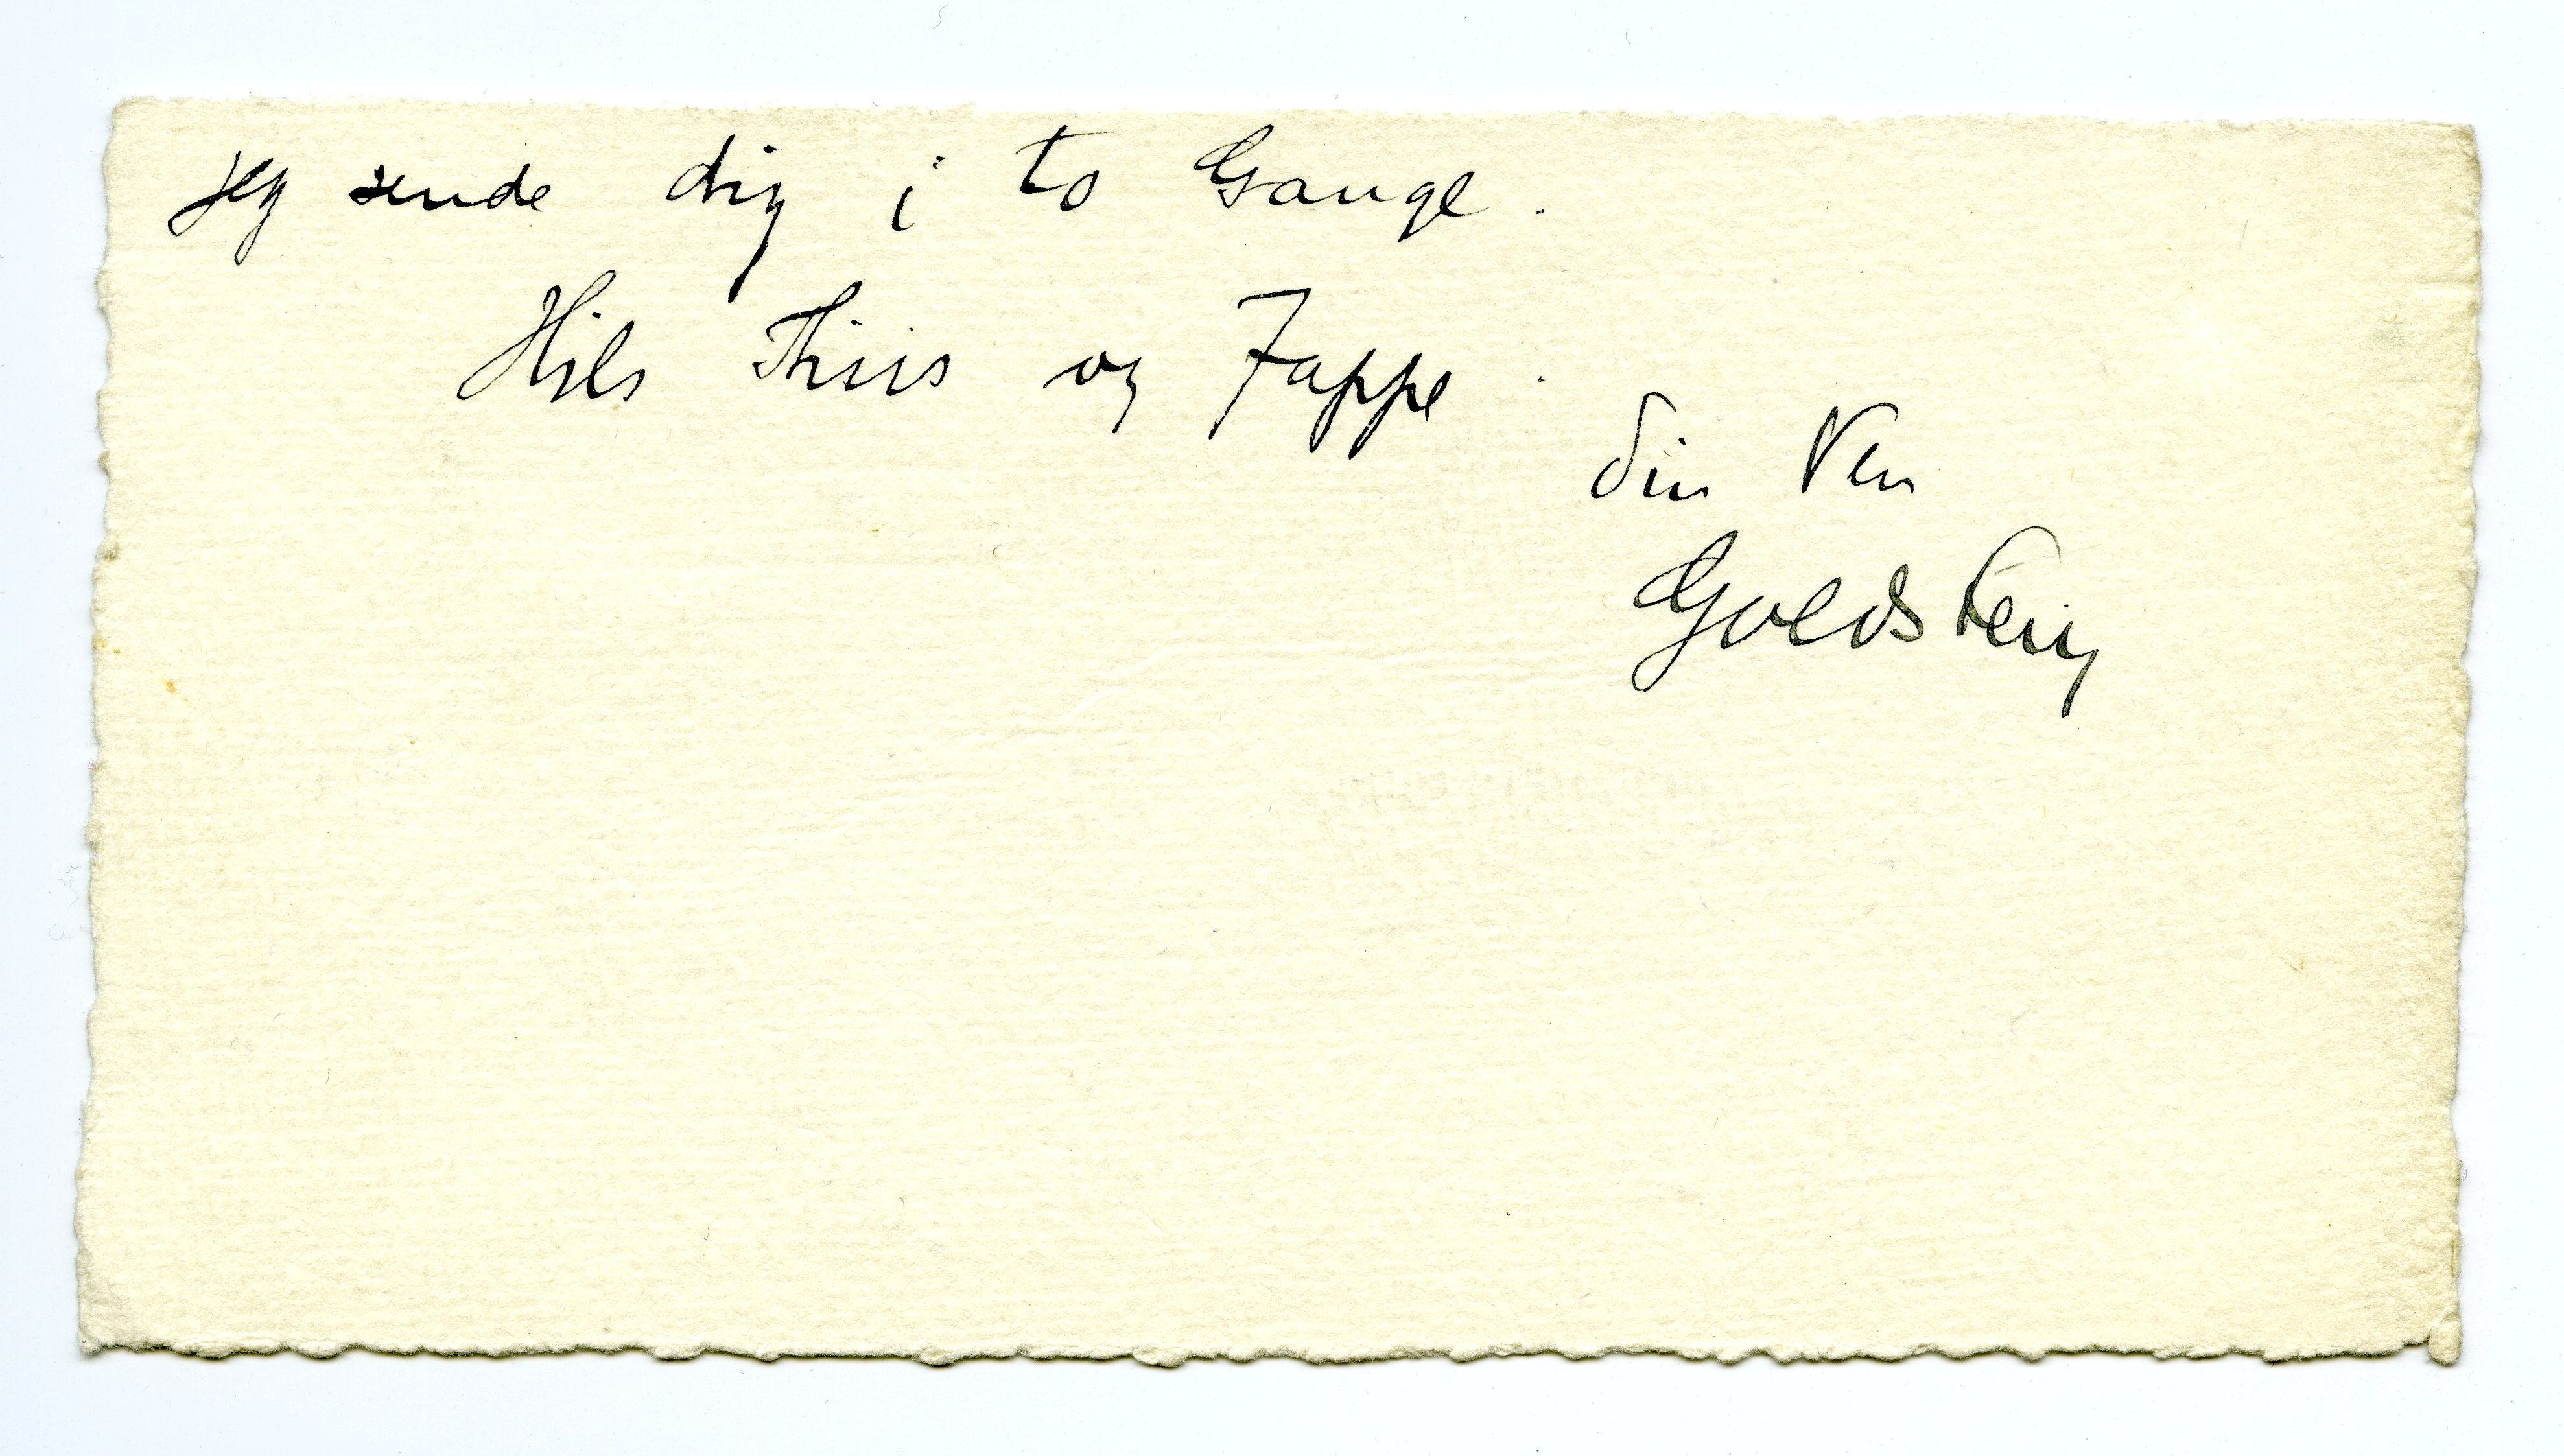 jeg sende dig i to Gange.
Hils Thiis og Jappe.
din Ven
Goldstein